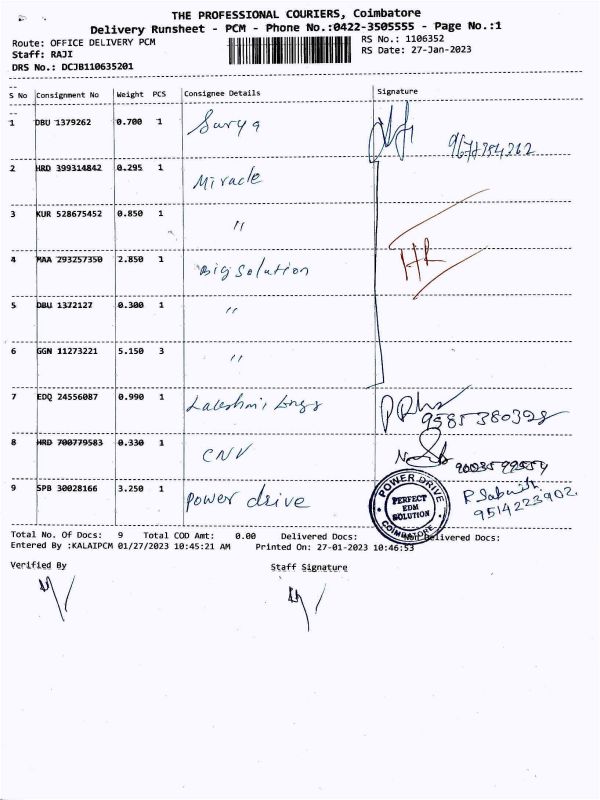 THE PROFESSIONAL COURIERS, Coimbatore
Delivery Runsheet - PCM - Phone No.:0422-3505555 - Page No.:1
Route: OFFICE DELIVERY PCM
Staff: RAJI
DRS No.: DCJB110635201
RS No.: 1106352
RS Date: 27-Jan-2023
S No Consignment No Weight PCS Consignee Details Signature
1 DBU 1379262 0.700 1 Surya
2 HRD 399314842 0.295 1 Miracle
3 KUR 528675452 0.850 1 "
4 MAA 293257350 2.850 1 Big Solution
HR
5 DBU 1372127 0.300 1 "
6 GGN 11273221 5.150 3 "
7 EDQ 24556087 0.990 1 Lakshmi 9585380398
8 HRD 700779583 0.330 1 CNV
9 SPB 30028166 3.250 1 Power drive 9514223902
POWER DRIVE
PERFECT
EDM
SOLUTION
COIMBATORE
Total No. Of Docs: 9 Total COD Amt: 0.00 Delivered Docs: Non Delivered Docs:
Entered By :KALAIPCM 01/27/2023 10:45:21 AM Printed On: 27-01-2023 10:46:53
Verified By Staff Signature